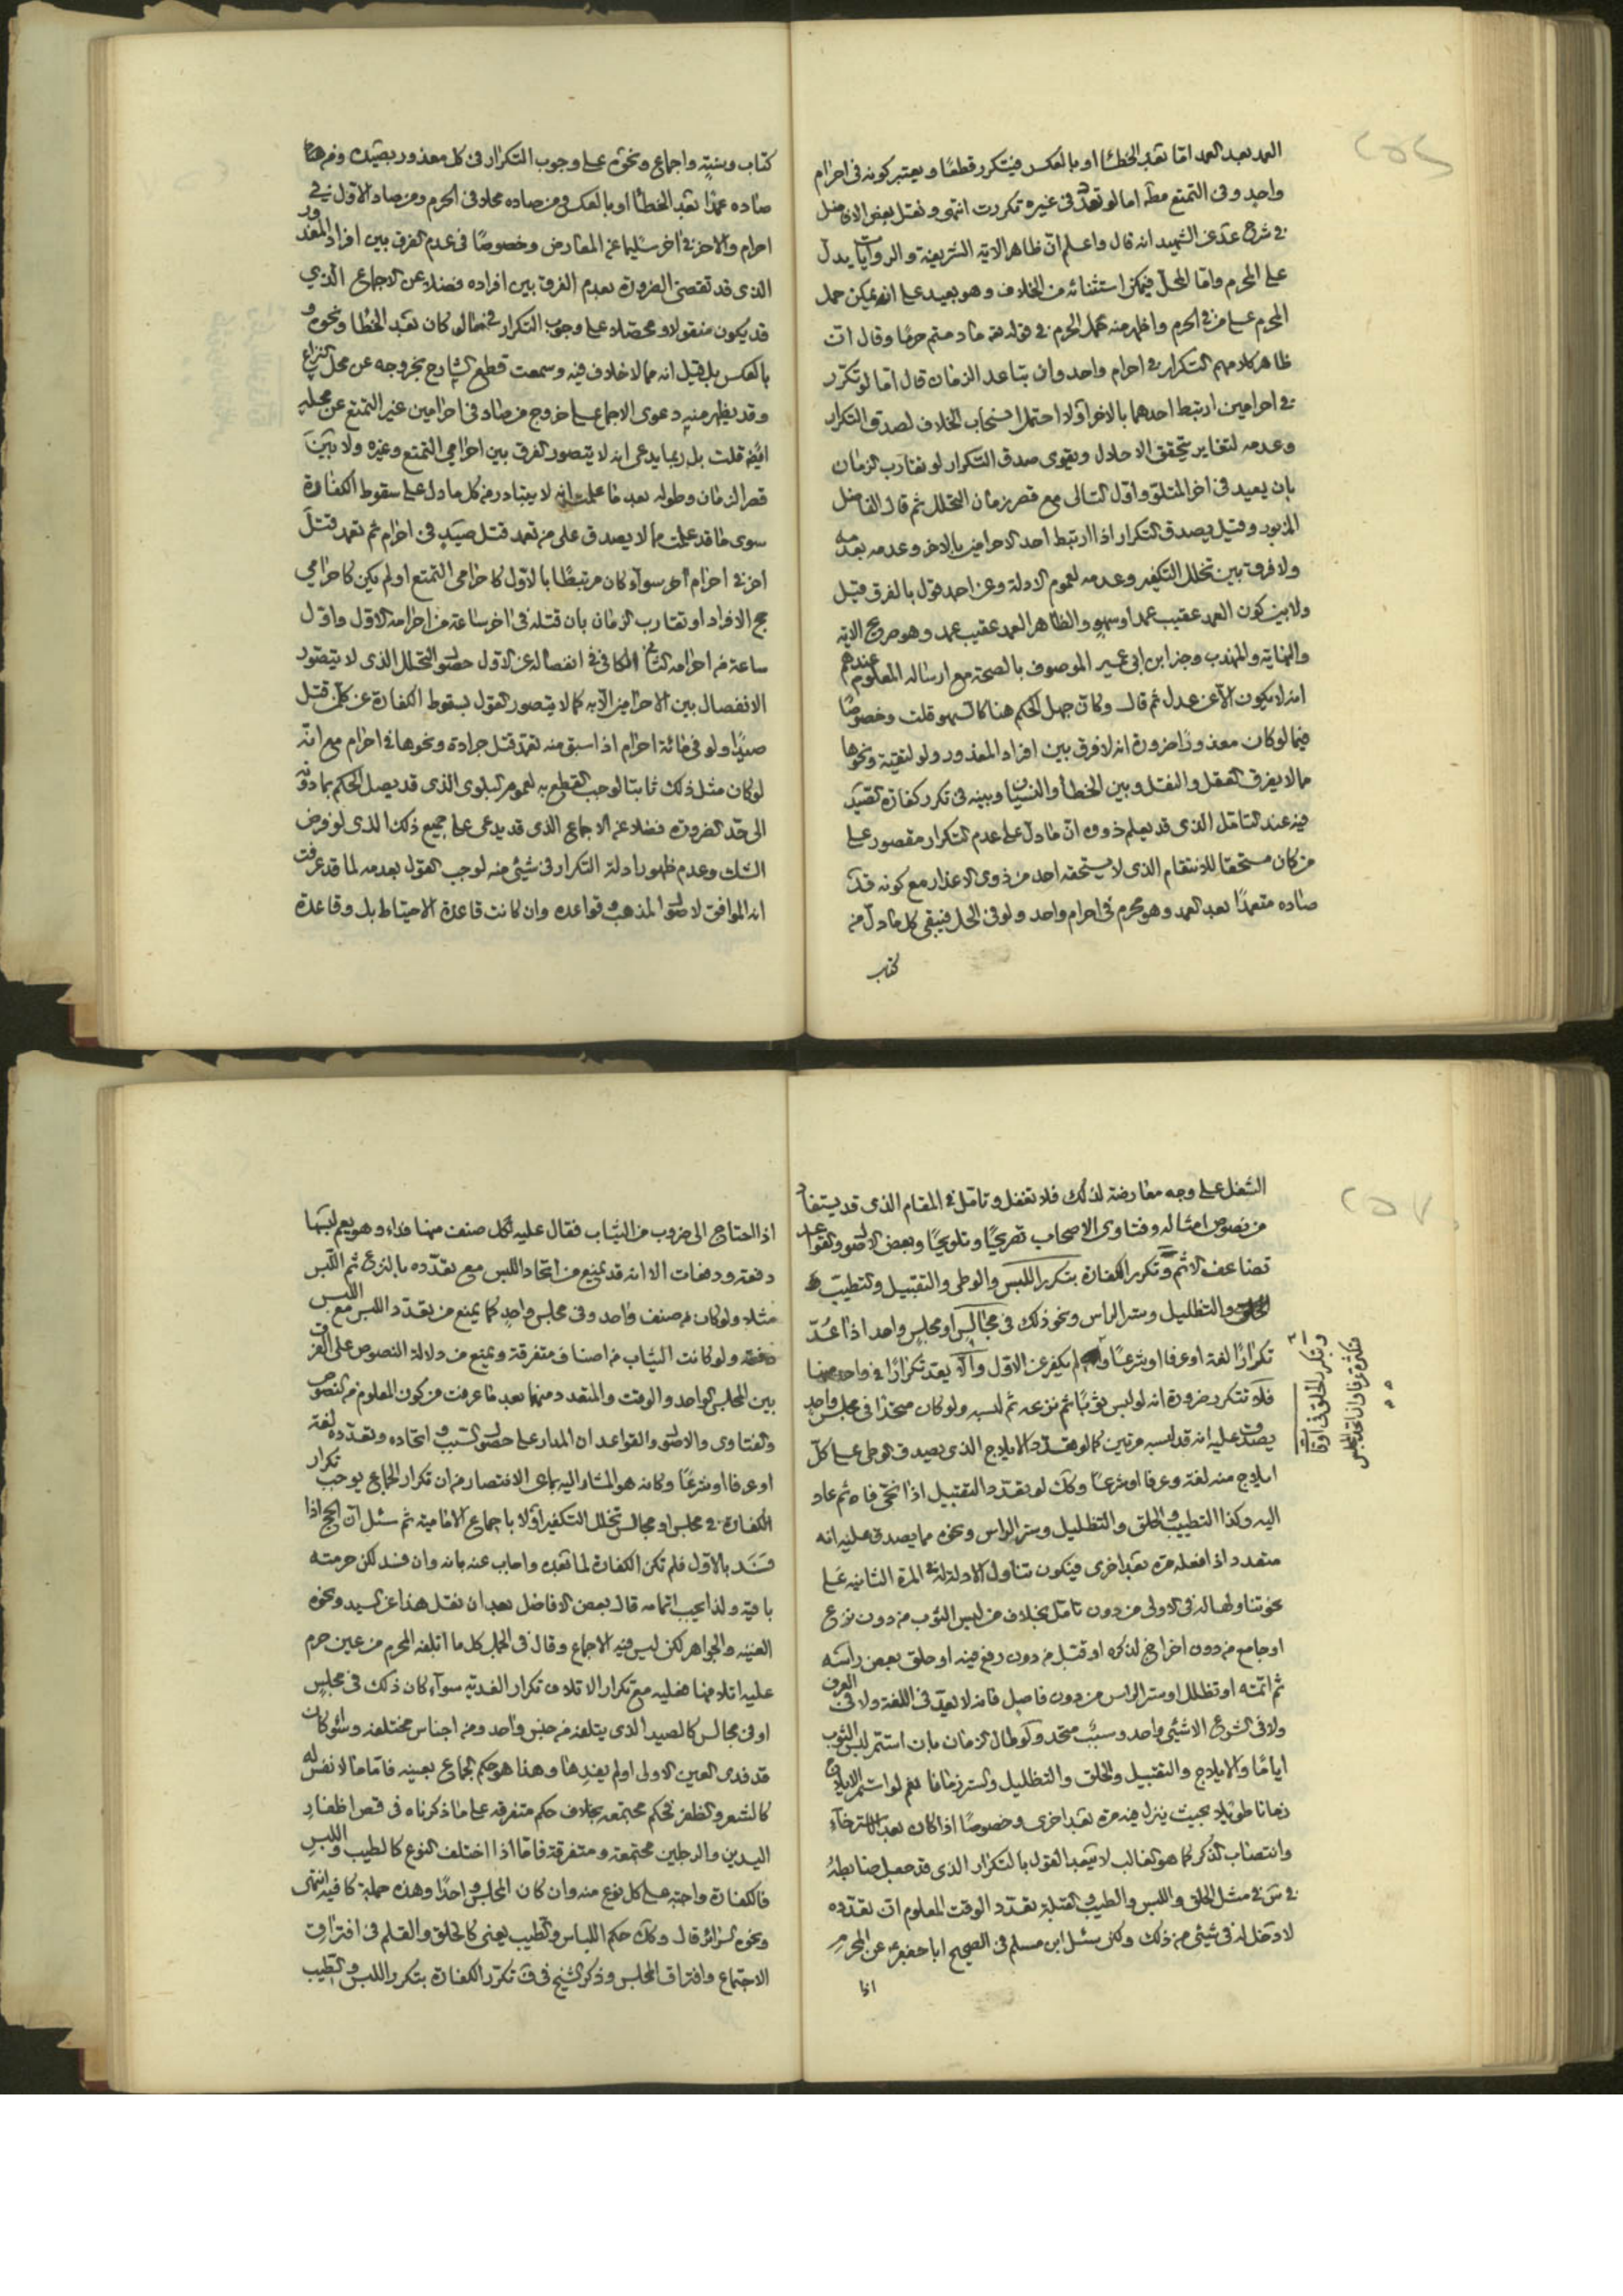 العمد بعد العمد اما بعد الخطا او بالعكس فيتكرر قطعًا ويعتبر كونه فى احرام
واحد وفى التمتع مطلقا اما لو تعدد فى غيره تكررت انتهى ونقل بعض الافاضل
فى شرح عن الشهيد انه قال واعلم ان ظاهر الاية الشريفة والروايات يدل
على المحرم واما المحل فيمكن استثنائه من الخلاف وهو بعيد على انه يمكن حمل
المحرم على من فى الحرم واظهر منه حمل الحرم فى قوله ما دمتم حرمًا وقال ان
ظاهر كلامهم التكرار فى احرام واحد وان تباعد الزمان قال اما لو تكرر
فى احرامين ارتبط احدهما بالاخر او لا احتمل انسحاب الخلاف لصدق التكرار
وعدمه لتغاير يتحقق الاحلال ويقوى صدق التكرار لو تقارب الزمان
بان يصيد فى اخر المتلو واول التالى مع قصر زمان التحلل ثم قال الفاضل
المزبور وقيل يصدق التكرار اذا ارتبط احد الاحرامين بالاخر وعدمه بعدمه
ولا فرق بين تخلل التكفير وعدمه لعموم الادلة وعن احمد قول بالفرق قيل
ولا بين كون العمد عقيب عمد او سهو والظاهر العمد عقيب عمد وهو صريح الاية
والنهاية والمهذب وخبر ابن ابى عمير الموصوف بالصحة مع ارساله المعلوم عندهم
انه لا يكون الا عن عدل ثم قال وكان جهل الحكم هنا كالسهو قلت وخصوصًا
فيما لو كان معذورًا ضرورة انه لا فرق بين افراد المعذور ولو لتقية ونحوها
مما لا يفرق العقل والنقل وبين الخطأ والنسيان وبينه فى تكرر كفارة الصيد
فيه عند التامل الذى قد يعلم ذووه ان ما دل على عدم التكرار مقصور على
من كان مستحقا للانتقام الذى لا يستحقه احد من ذوى الاعذار مع كونه قد
صاده متعمدًا بعد العمد وهو محرم فى احرام واحد ولو فى الحل فيبقى كل ما دل من
كتاب
كتاب وسنة واجماع ونحوه على وجوب التكرار فى كل معذور بصيده وفيمن
صاده عمدًا بعد الخطأ او بالعكس وفيمن صاده محلا فى الحرم ومن صاد الاول فى
احرام والاخر فى اخر سليما عن المعارض وخصوصًا فى عدم الفرق بين افراد المعذور
الذى قد تقضى الضرورة بعدم الفرق بين افراده فضلا عن الاجماع الذى
قد يكون منقولا ومحصلا على وجوب التكرار فيما لو كان بعد الخطا ونحوه و
بالعكس بل قيل انه مما لا خلاف فيه وسمعت قطع الشارح بخروجه عن محل النزاع
وقد يظهر منه دعوى الاجماع على خروج من صاد فى احرامين غير التمتع عن محله
ايضا قلت بل ربما يدعى انه لا يتصور الفرق بين احرامي التمتع وغيره ولا بين
قصر الزمان وطوله بعد ما علمت انه لا يتبادر من كل ما دل على سقوط الكفارة
سوى ما قد علمت مما لا يصدق على من تعمد قتل صيد فى احرام ثم تعمد قتل
اخر فى احرام اخر سواء كان مرتبطًا بالاول كاحرامى التمتع او لم يكن كاحرامي
حج الافراد او تقارب الزمان بان قتله فى اخر ساعة من احرامه الاول واول
ساعة من احرامه الثانى الكافى فى انفصاله عن الاول حصول التحلل الذى لا يتصور
الانفصال بين الاحرامين الا به كما لا يتصور القول بسقوط الكفارة عن كل من قتل
صيدًا ولو فى مائة احرام اذا سبق منه تعمد قتل جرادة ونحوها فى احرام مع انه
لو كان مثل ذلك ثابتا لوجب القطع به لعموم البلوى الذى قد يصل الحكم بما دونه
الى حد الضرورة فضلا عن الاجماع الذى قد يدعى على جميع ذلك الذى لو فرض
الشك وعدم ظهور ادلة التكرار فى شئ منه لوجب القول بعدمه لما قد عرفت
انه الموافق لاصول المذهب وقواعده وان كانت قاعدة الاحتياط بل وقاعدة
الشغل على وجه معارضة لذلك فلا تغفل وتامل فى المقام الذى قد يستفاد
من نصوص امثاله وفتاوى الاصحاب تصريحًا وتلويحًا وبعض الاصول والقواعد
تضاعف الاثم وتكرر الكفارة بتكرر اللبس والوطى والتقبيل والتطيب و
الحلق والتظليل وستر الراس ونحو ذلك فى مجالس او مجلس واحد اذا عد
تكرارًا لغة او عرفا او شرعًا لم يكفر عن الاول والا يعد تكرارًا فى واحد منها
فلا تتكرر ضرورة انه لو لبس ثوبًا ثم نزعه ثم لبسه ولو كان متحدًا فى مجلس واحد
يصدق عليه انه قد لبسه مرتين كما لو تعدد الايلاج الذى يصدق الوطى على كل
ايلاج منه لغة وعرفا او شرعًا وكذا لو تعدد التقبيل اذا نحى فاه ثم عاد
اليه وكذا التطييب والحلق والتظليل وستر الراس ونحوه مما يصدق عليه انه
متعدد اذا فعله مرة بعد اخرى فيكون تناول الادلة له فى المرة الثانية على
نحو تناولها له فى الاولى من دون تامل بخلاف من لبس الثوب من دون نزع
او جامع من دون اخراج لذكره او قبل من دون رفع فيه او حلق بعض راسه
ثم اتمه او تظلل او ستر الراس من دون فاصل فانه لا يعد فى اللغة ولا فى العرف
ولا فى الشرع الا شئ واحد وسبب متحد ولو طال الزمان بان استمر لبس الثوب
ايامًا والايلاج والتقبيل والحلق والتظليل والستر زمانا نعم لو استمر الايلاج
زمانا طويلا بحيث ينزل فيه مرة بعد اخرى وخصوصًا اذا كان بعد الاسترخاء
وانتصاب الذكر كما هو الغالب لا يبعد القول بالتكرار الذى قد جعل ضابطه
فى مثل الحلق واللبس والطيب والقبلة تعدد الوقت المعلوم ان تعدده
لا دخل له فى شئ من ذلك ولكن سئل ابن مسلم فى الصحيح ابا جعفر عن المحرم
اذا
وتكرر الحلق فى اوقات
متكثرة عرفا وان اتحد المجلس
اذا احتاج الى ضروب من الثياب فقال عليه لكل صنف منها فداء وهو يعم لبسها
دفعة ودفعات الا انه قد يمنع من اتحاد اللبس مع تعدده بالنزع ثم اللبس
مثلا ولو كان من صنف واحد وفى مجلس واحد كما يمنع من تعدد اللبس مع اللبس
دفعة ولو كانت الثياب من اصناف متفرقة ويمنع من دلالة النصوص على الفرق
بين المجلس الواحد والوقت والمتعدد منهما بعد ما عرفت من كون المعلوم من النصوص
والفتاوى والاصول والقواعد ان المدار على حصول السبب واتحاده وتعدده لغة
او عرفا او شرعًا وكانه هو المشار اليه بما عن الانتصار من ان تكرار الجماع يوجب تكرار
الكفارة فى مجلس او مجالس تخلل التكفير او لا باجماع الامامية ثم سئل ان الحج اذا
فسد بالاول فلم تكن الكفارة لما بعده واجاب عنه بانه وان فسد لكن حرمته
باقية ولذا يجب اتمامه قال بعض الافاضل بعد ان نقل هذا عن السيد ونحوه
الغنية والجواهر لكن ليس فيه الاجماع وقال فى الجمل كل ما اتلفه المحرم من عين حرم
عليه اتلافها فعليه مع تكرار الاتلاف تكرار الفدية سواء كان ذلك فى مجلس
او فى مجالس كالصيد الذى يتلفه من جنس واحد ومن اجناس مختلفة وسواء كان
قد فدى العين الاولى او لم يفدها وهذا هو حكم الجماع بعينه فاما ما لا نفس له
كالشعر والظفر فحكم مجتمعه بخلاف حكم متفرقه على ما ذكرناه فى قص اظفار
اليدين والرجلين مجتمعة ومتفرقة فاما اذا اختلف النوع كالطيب واللبس
فالكفارة واجبة على كل نوع منه وان كان المجلس واحدًا وهذه جملة كافية انتهى
ونحوه السرائر قال وكذلك حكم اللباس والطيب يعنى كالحلق والقلم فى افتراق
الاجتماع وافتراق المجلس وذكر الشيخ فى تكرر الكفارة بتكرر اللبس والطيب